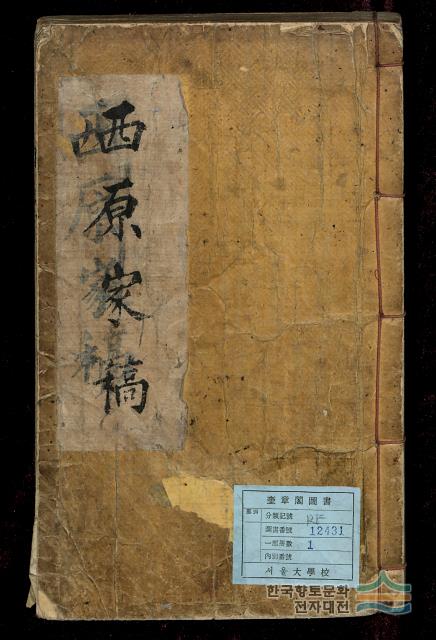 西原家稿
奎章閣圖書
分類記號
圖書番號 12431
一部册數 1
內別番號
서울大學校
한국향토문화
전자대전